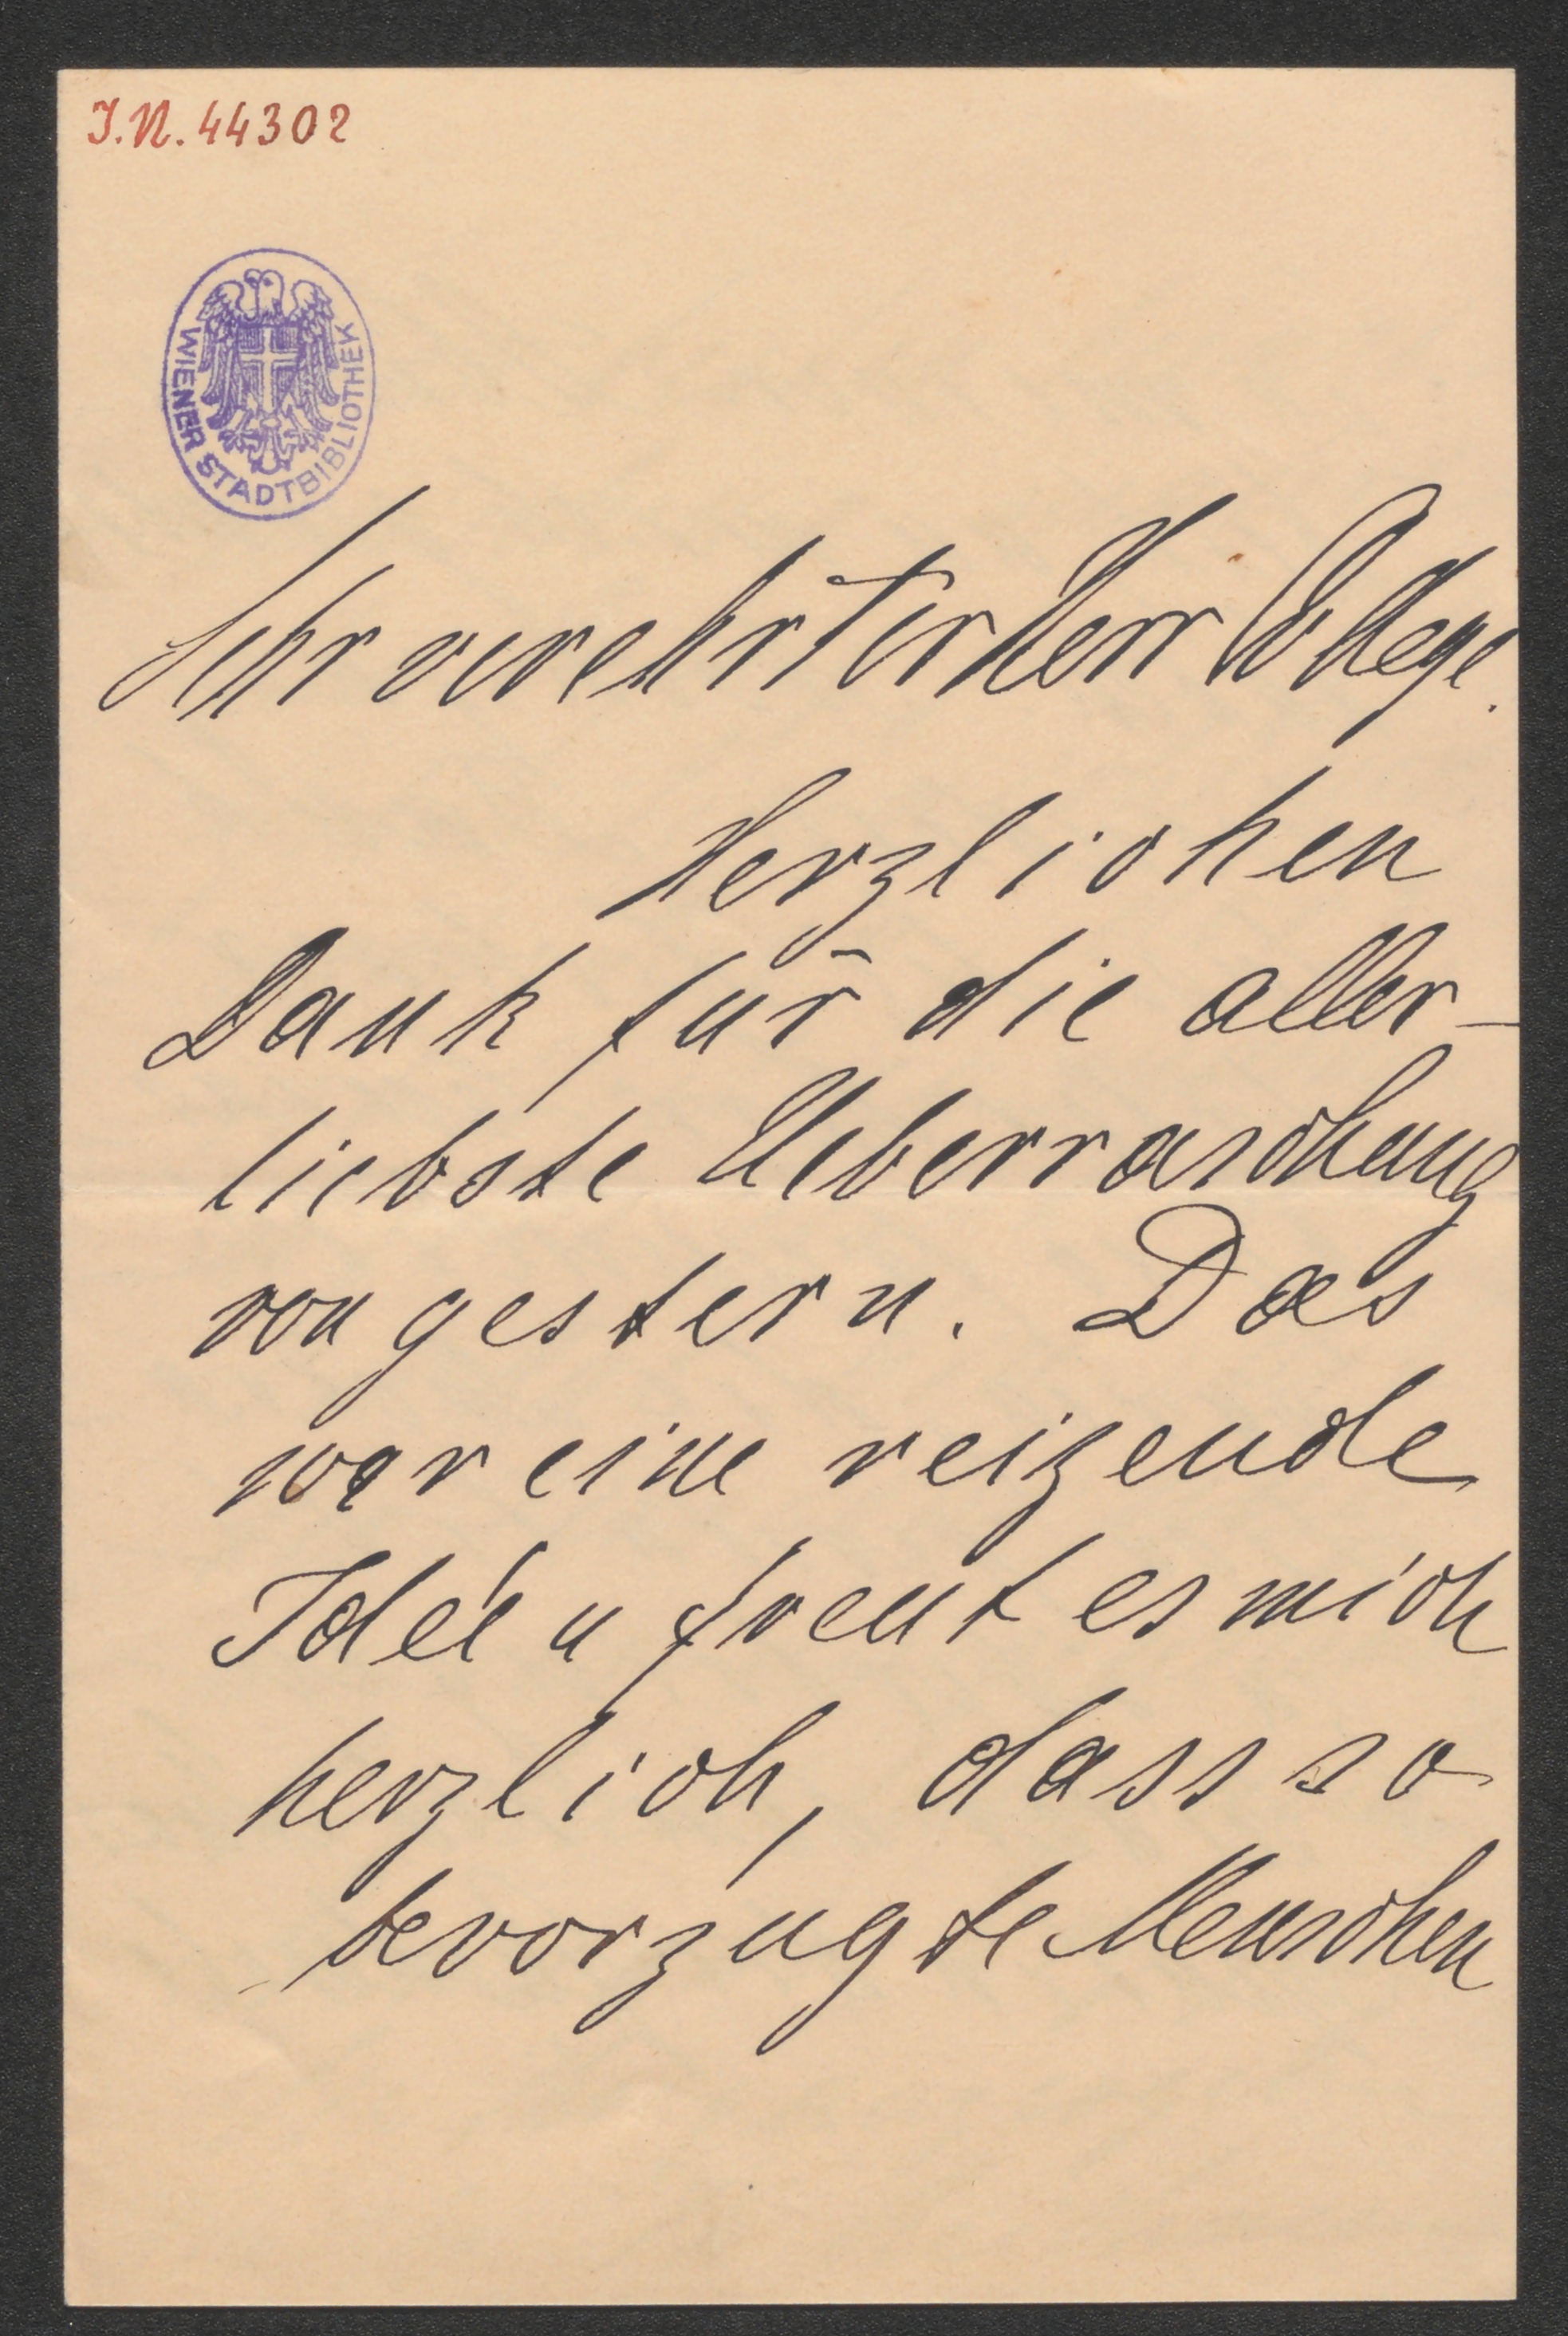 I.N. 44302
WIENER STADTBIBLIOTHEK
Sehr verehrter Herr College.
Herzlichen
Dank für die aller-
liebste Ueberraschung
von gestern. Das
war eine reizende
Idée u freut es mich
herzlich, dass so
bevorzugte Menschen